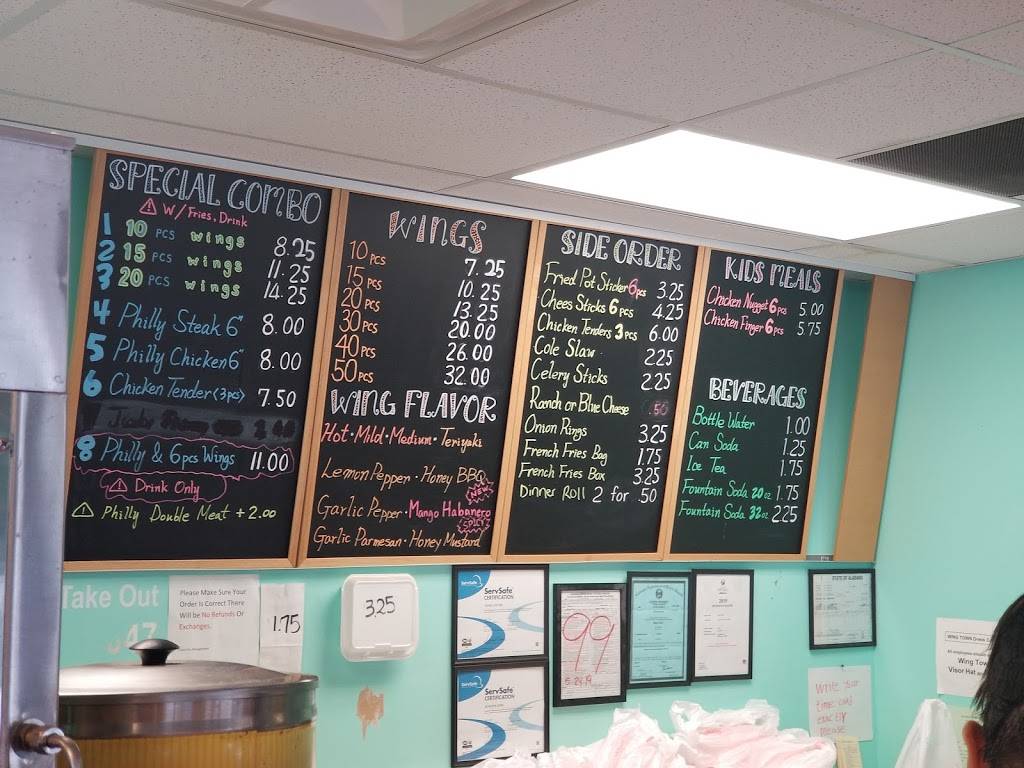 SPECIAL COMBO
W/ Fries, Drink
1 10 PCS wings 8.25
2 15 PCS wings 11.25
3 20 PCS wings 14.25
4 Philly Steak 6" 8.00
5 Philly Chicken 6" 8.00
6 Chicken Tender (3pcs) 7.50
8 Philly & 6pcs Wings 11.00
Drink Only
Philly Double Meat + 2.00
WINGS
10 PCS 7.25
15 PCS 10.25
20 PCS 13.25
30 PCS 20.00
40 PCS 26.00
50 PCS 32.00
WING FLAVOR
Hot · Mild · Medium · Teriyaki
Lemon Pepper · Honey BBQ
NEW
Garlic Pepper · Mango Habanero
SPICY
Garlic Parmesan · Honey Mustard
SIDE ORDER
Fried Pot Sticker 6pcs 3.25
Chees Sticks 6 pcs 4.25
Chicken Tenders 3 pcs 6.00
Cole Slaw 2.25
Celery Sticks 2.25
Ranch or Blue Cheese .50
Onion Rings 3.25
French Fries Bag 1.75
French Fries Box 3.25
Dinner Roll 2 for .50
KIDS MEALS
Chicken Nugget 6pcs 5.00
Chicken Finger 6pcs 5.75
BEVERAGES
Bottle Water 1.00
Can Soda 1.25
Ice Tea 1.75
Fountain Soda 20 oz 1.75
Fountain Soda 32 oz 2.25
Take Out
47
Please Make Sure Your
Order Is Correct There
Will be No Refunds Or
Exchanges.
1.75
3.25
ServSafe
CERTIFICATION
ServSafe
CERTIFICATION
99
5-24-19
2019
STATE OF ALABAMA
Write your
time and
exactly
please
WING TOWN
Wing Tow
Visor Hat